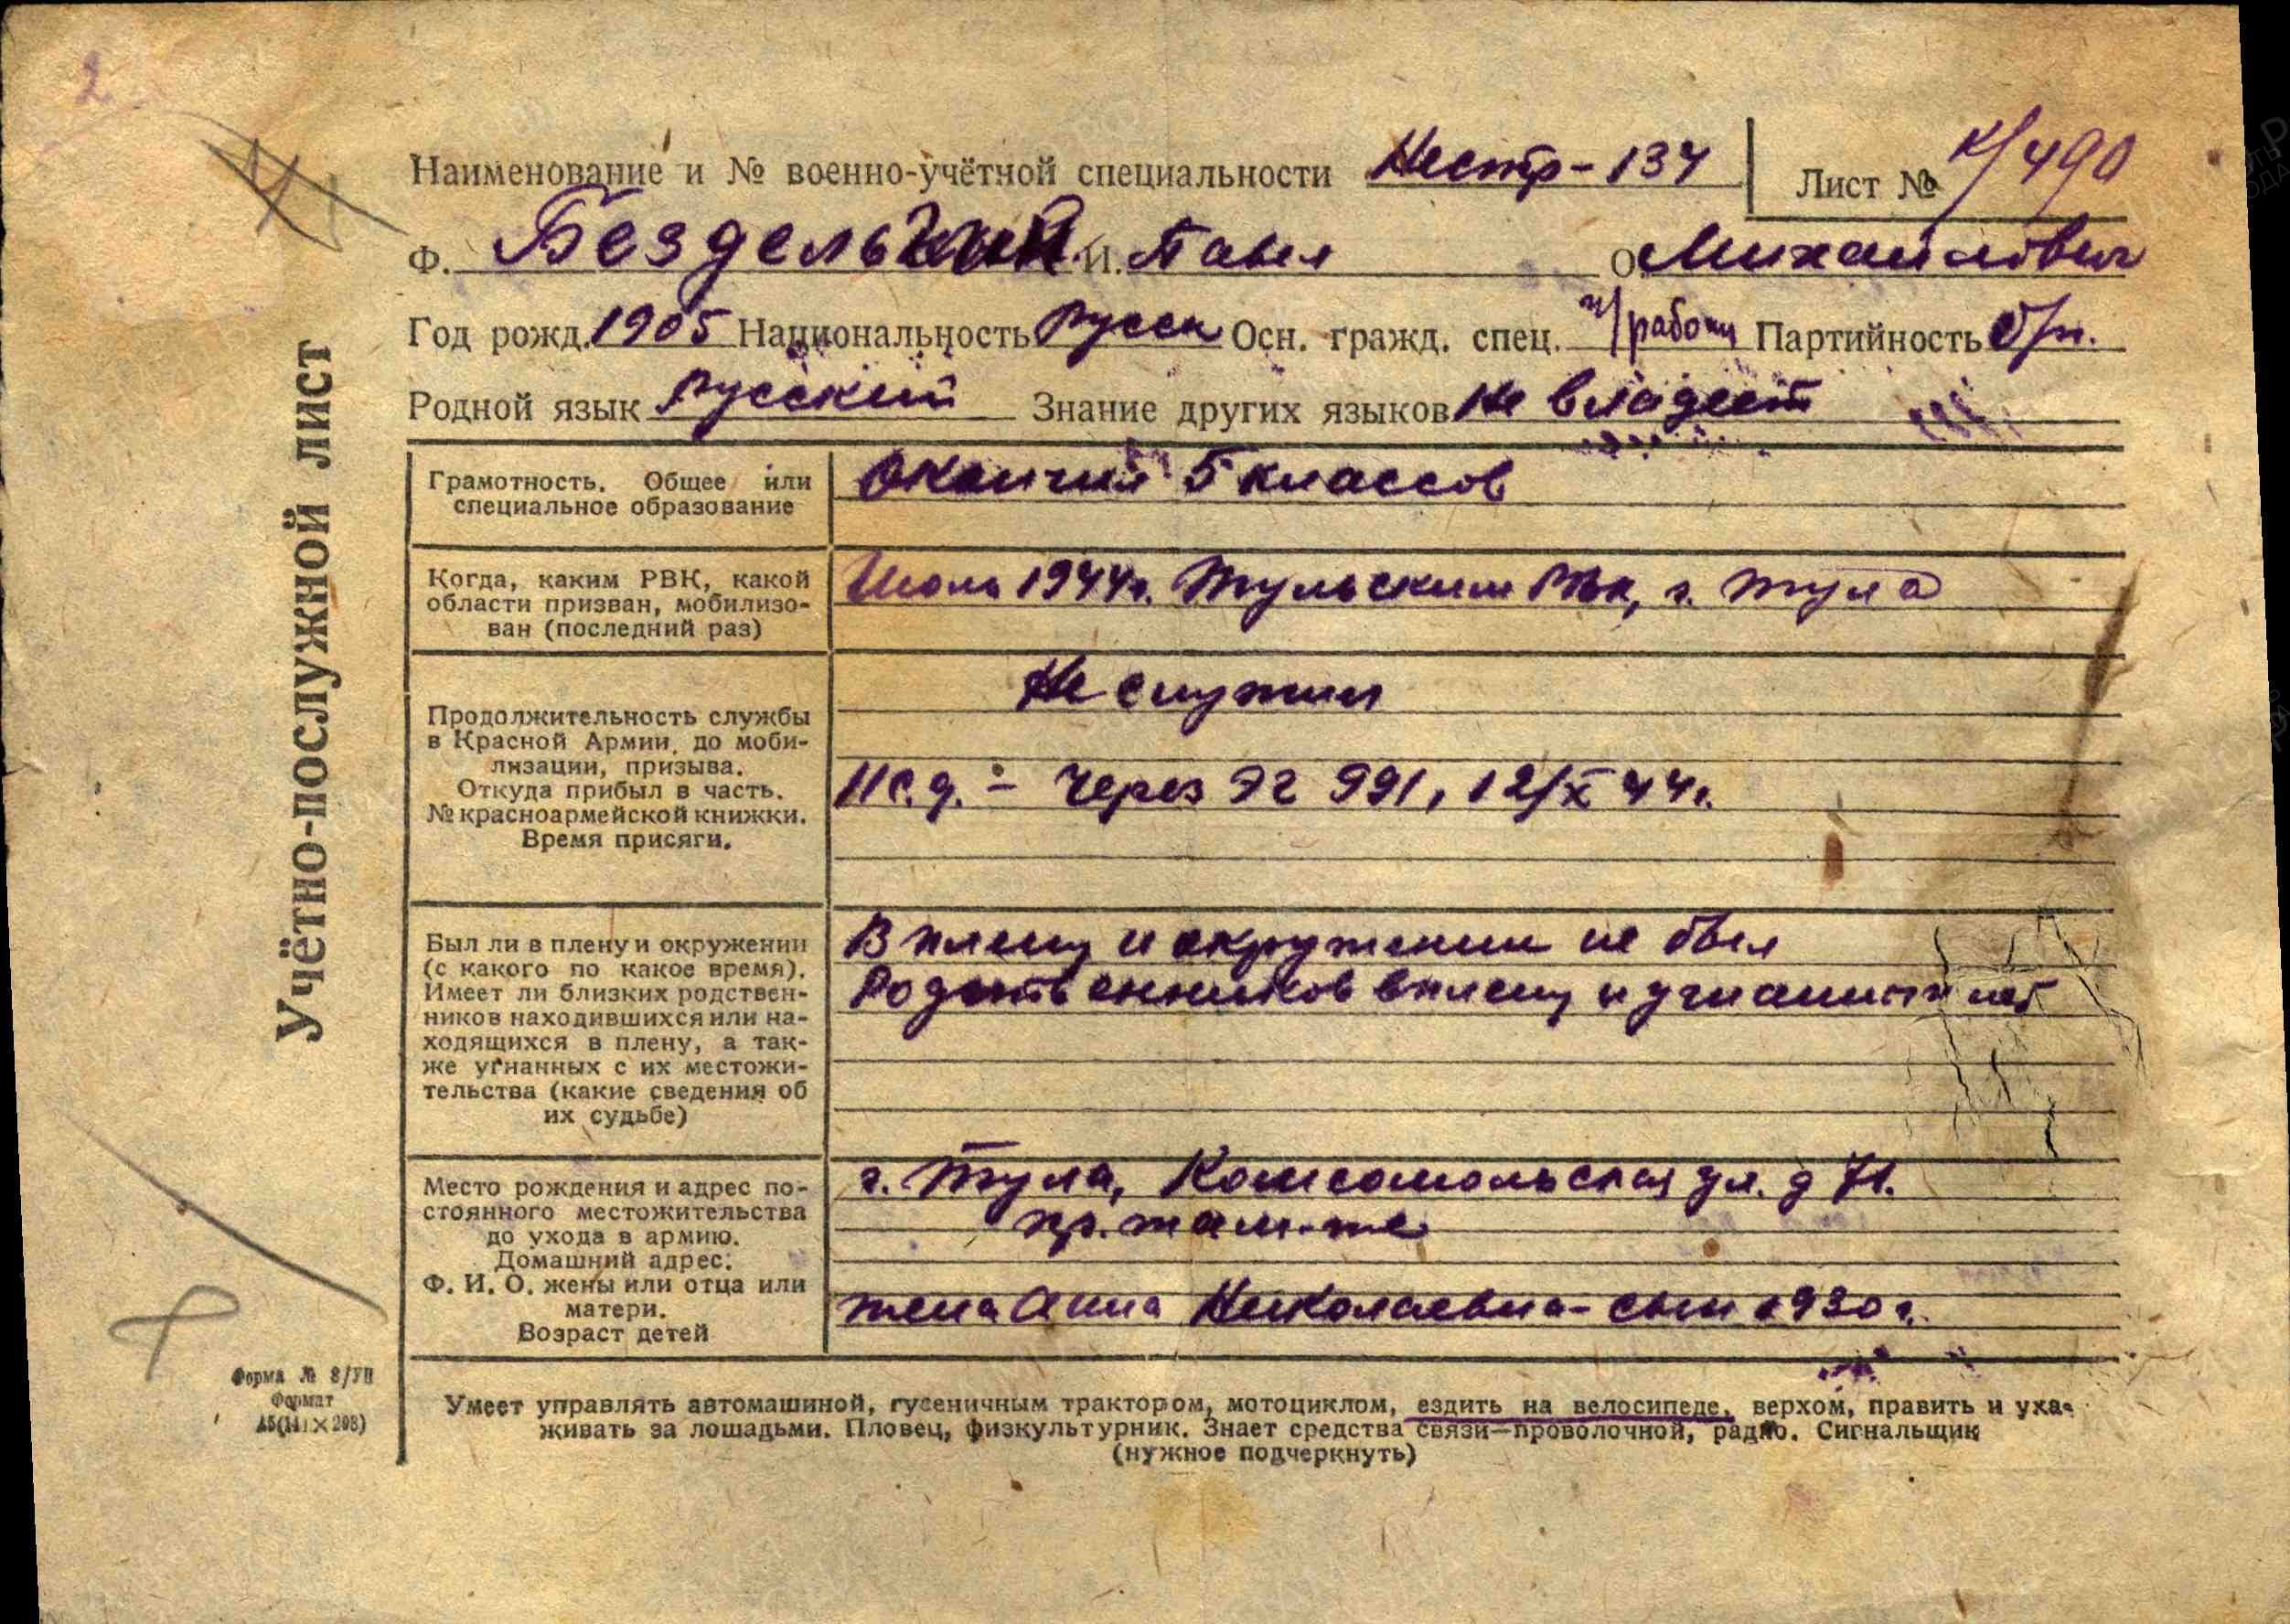 2
Наименование и № военно-учётной специальности Нестр-134
Лист № К/490
Ф. И. Павел О Михайлович
Год рожд. 1905 Национальность русск Осн. гражд. спец. Партийность б/п.
Родной язык русский Знание других языков не владеет
Учётно-послужной лист
Грамотность. Общее или
специальное образование
Окончил 5 классов
Когда, каким РВК, какой
области призван, мобилизо-
ван (последний раз)
1944г. Тульским РВК, г. Тула
Продолжительность службы
в Красной Армии, до моби-
лизации, призыва.
Откуда прибыл в часть.
№ красноармейской книжки.
Время присяги.
Не служил
через ЭГ 991, 12/X 44г.
Был ли в плену и окружении
(с какого по какое время).
Имеет ли близких родствен-
ников находившихся или на-
ходящихся в плену, а так-
же угнанных с их местожи-
тельства (какие сведения об
их судьбе)
В плену и окружении не был
Родственников в плену и угнанных нет
Место рождения и адрес по-
стоянного местожительства
до ухода в армию.
Домашний адрес:
Ф. И. О. жены или отца или
матери.
Возраст детей
г. Тула, Комсомольская ул. д 71.
пр. там-же
жена Анна Николаевна - сын 1930г.
Форма № 8/УП
Формат
Умеет управлять автомашиной, гусеничным трактором, мотоциклом, ездить на велосипеде, верхом, править и уха-
живать за лошадьми. Пловец, физкультурник. Знает средства связи—проволочной, радио. Сигнальщик
(нужное подчеркнуть)